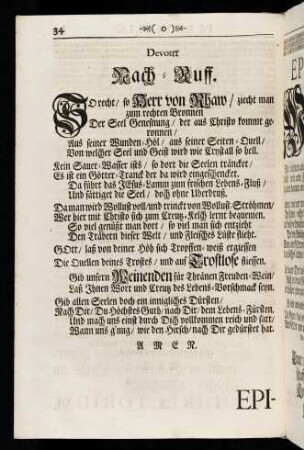 34
( o )
Devoter
Nach-Ruff.
SO recht / so Herr von Rhaw / zieht man
zum rechten Bronnen
Der Seel Genesung / der aus Christo kommt ge-
ronnen /
Aus seiner Wunden-Höl / aus seiner Seiten-Quell /
Von welcher Seel und Geist wird wie Crystall so hell.
Kein Sauer-Wasser ists / so dort die Seelen träncket /
Es ist ein Götter-Tranck der da wird eingeschencket.
Da führt das JEsus-Lamm zum frischen Lebens-Fluß /
Und sättiget die Seel / doch ohne Uberdruß.
Da man wird Wollust-voll und trinckt von Wollust-Ströhmen /
Wer hier mit Christo sich zum Creutz-Kelch lernt bequemen.
So viel genüßt man dort / so viel man sich entzieht
Den Träbern dieser Welt / und Fleisches Lüste flieht.
GOtt / laß von deiner Höh sich Tropffen-weiß ergiessen
Die Quellen deines Trostes / und auf Trostlose fliessen.
Gib unsern Weinenden für Thränen Freuden-Wein /
Laß Ihnen Wort und Creutz des Lebens-Vorschmack seyn.
Gib allen Seelen doch ein innigliches Dürsten /
Nach Dir / Du Höchstes Guth / nach Dir / dem Lebens-Fürsten.
Und mach uns einst durch Dich vollkommen reich und satt /
Wann uns g'nug / wie den Hirsch / nach Dir gedürstet hat.
A M E N.
EPI-